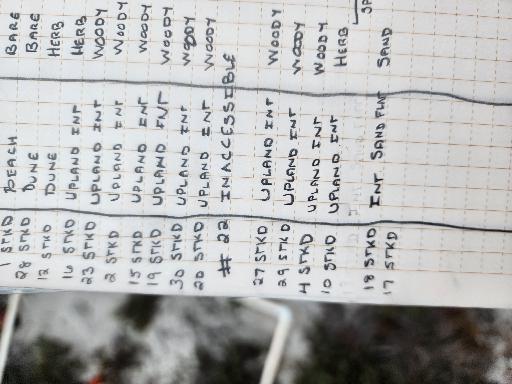 1 STKD BEACH BARE
28 STKD DUNE BARE
12 STKD DUNE HERB
16 STKD UPLAND INT HERB
23 STKD UPLAND INT WOODY
2 STKD UPLAND INT WOODY
15 STKD UPLAND INT WOODY
19 STKD UPLAND INT WOODY
30 STKD UPLAND INT WOODY
20 STKD UPLAND INT WOODY
# 22 INACCESSIBLE
27 STKD UPLAND INT WOODY
29 STKD UPLAND INT WOODY
4 STKD UPLAND INT WOODY
10 STKD UPLAND INT HERB
18 STKD INT SAND FLAT SAND
17 STKD